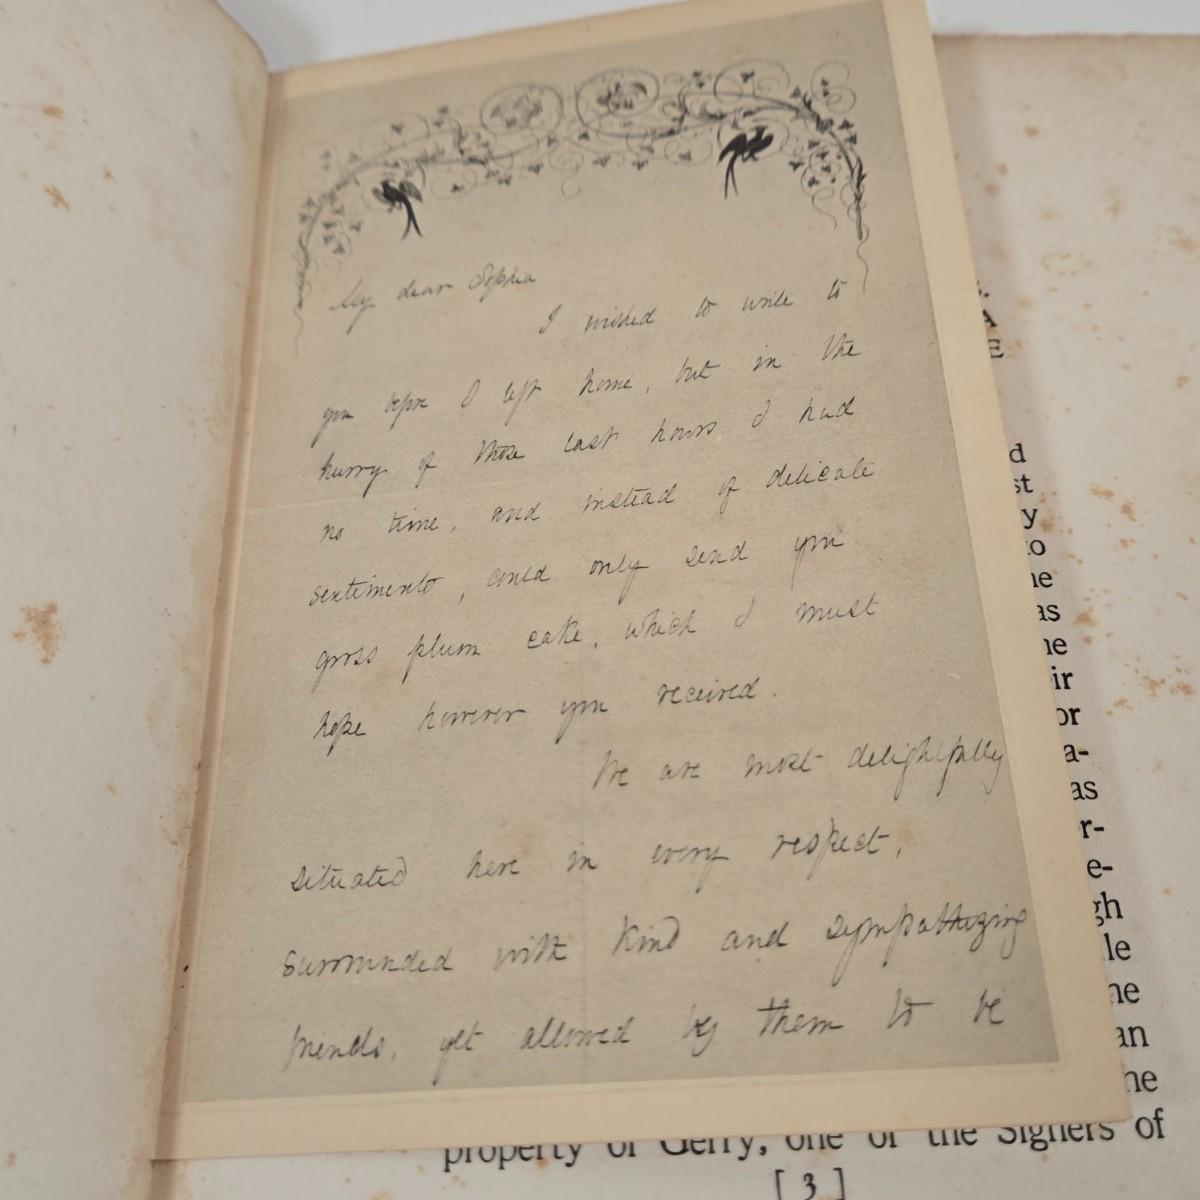 My dear Sophia
I wished to write to
you before I left home, but in the
hurry of those last hours I had
no time, and instead of delicate
sentiments, could only send you
gross plum cake, which I must
hope however you received.
We are most delightfully
situated here in every respect,
surrounded with kind and sympathizing
friends, yet allowed by them to be
A
E
d
st
y
to
ne
as
ne
ir
or
a-
as
r-
e-
gh
le
ne
an
he
property of Gerry, one of the Signers of
[ 3 ]